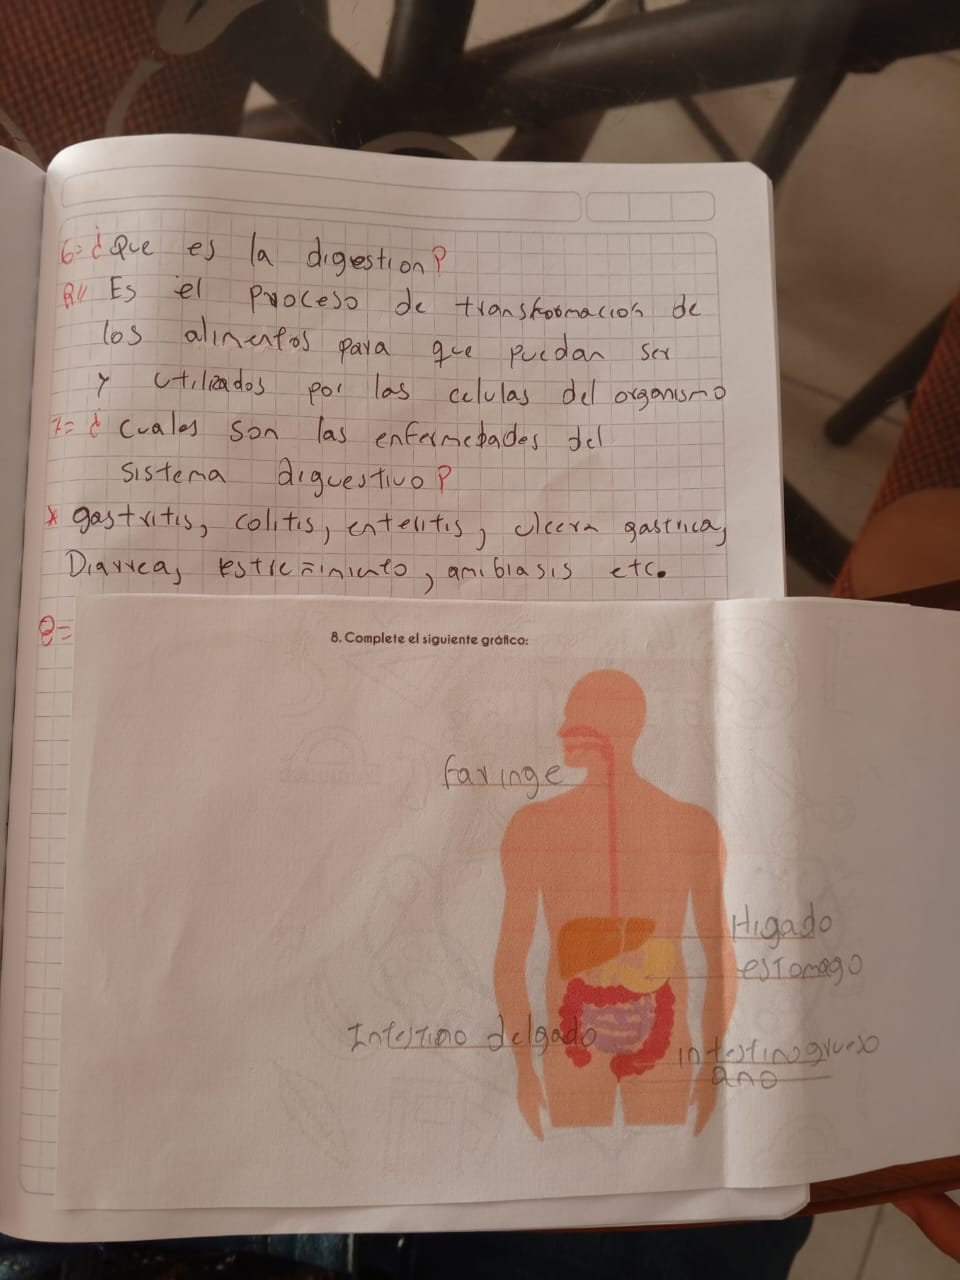 6= ¿Que es la digestion?
R// Es el proceso de transformacion de
los alimentos para que puedan ser
y utilizados por las celulas del organismo
7= ¿Cuales son las enfermedades del
sistema diguestivo?
* gastritis, colitis, enteritis, ulcera gastrica,
Diarrea, estreñimiento, amibiasis etc.
8=
8. Complete el siguiente gráfico:
faringe
Higado
estomago
Intestino delgado
intestino grueso
ano